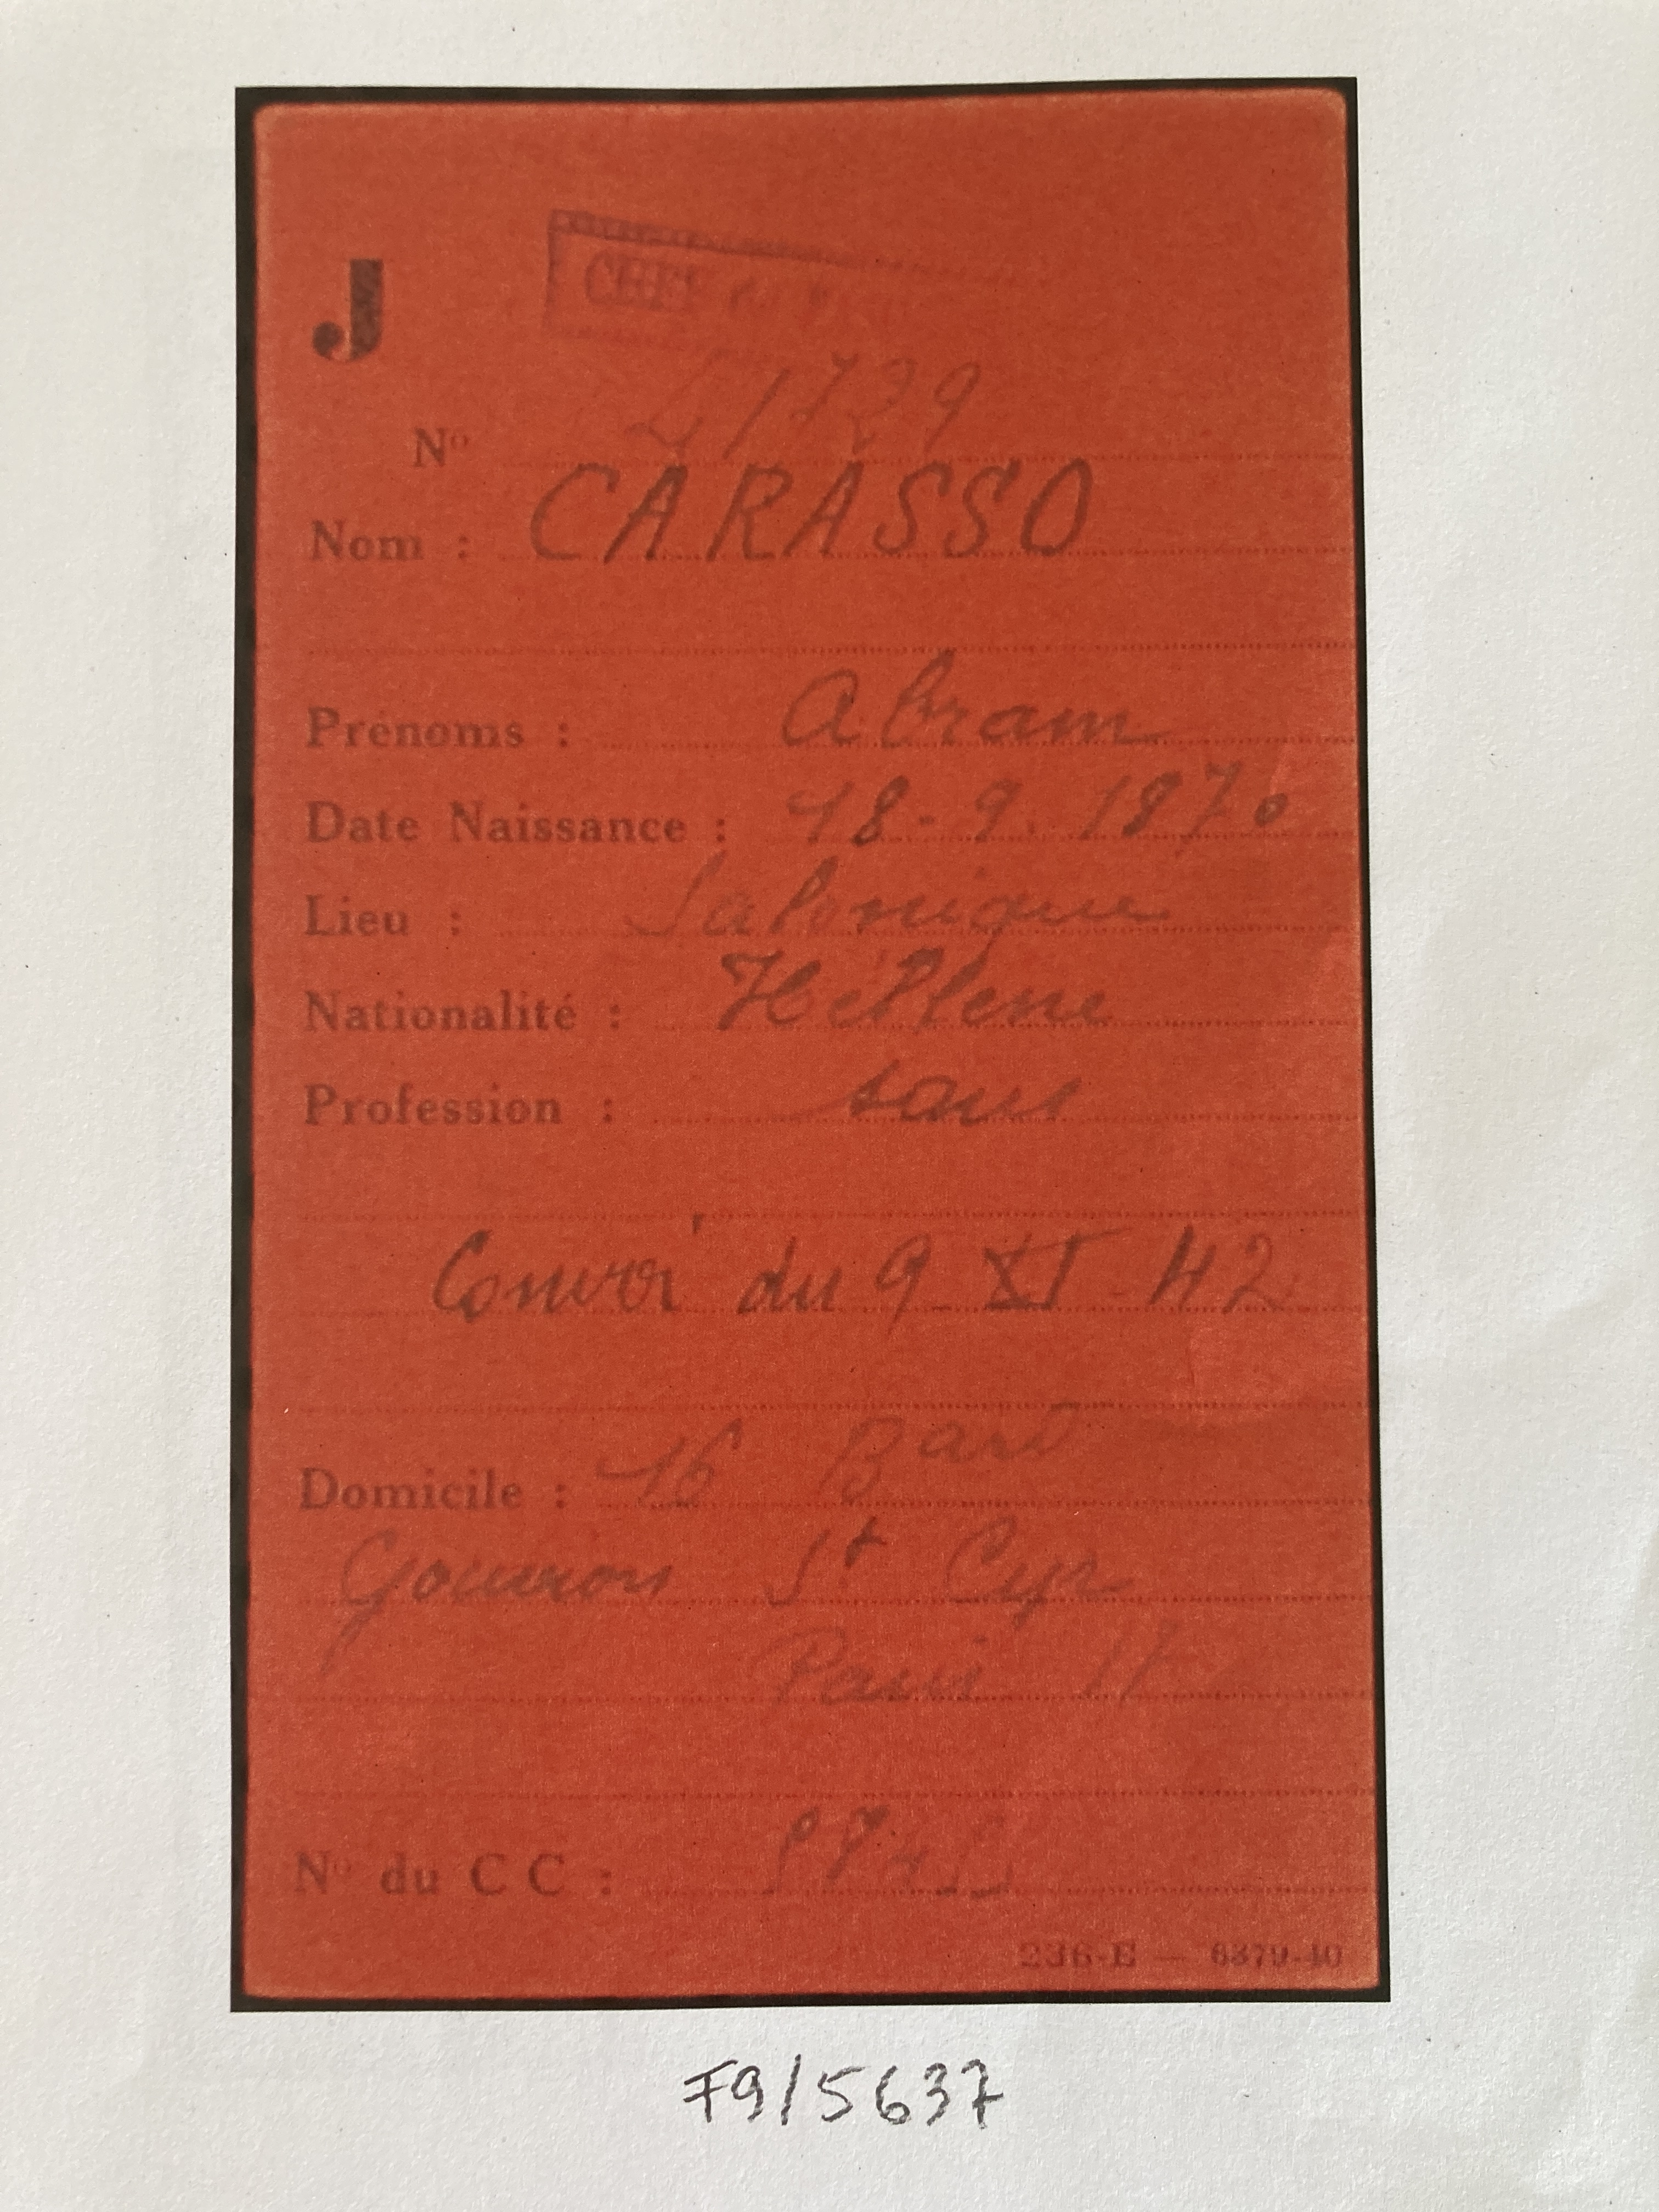 J
CHEF
N° 41739
Nom : CARASSO
Prénoms : Abram
Date Naissance : 18-9. 1870
Lieu : Salonique
Nationalité : Hellene
Profession : sans
Convoi du 9 XI 42
Domicile : 16 Bard
Gouvion St Cyr
Paris 17
N° du C C :
236-E — 8379-40
F9/5637